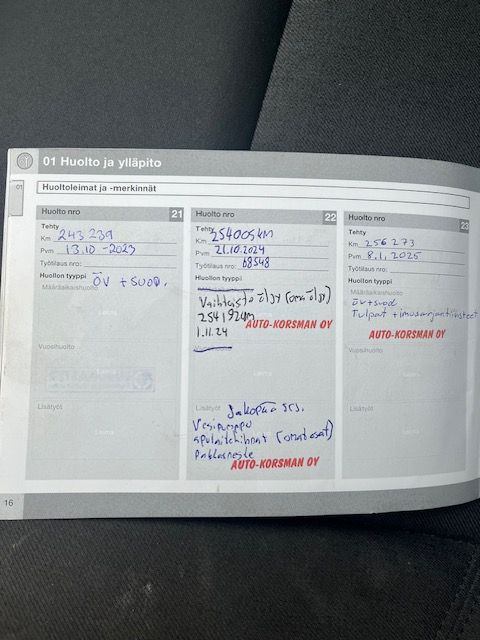 01 Huolto ja ylläpito
01
Huoltoleimat ja -merkinnät
Huolto nro 21
Tehty
Km 243 239
Pvm 13.10 -2023
Työtilaus nro:
Huollon tyyppi
ÖV + SUOD.
Määräaikaishuolto
Leima
Vuosihuolto
Leima
Lisätyöt
Leima
Huolto nro 22
Tehty
Km 254005KM
Pvm 21.10.2024
Työtilaus nro: 68548
Huollon tyyppi
Vaihteisto öljy (oma öljy)
254192KM
1.11.24
AUTO-KORSMAN OY
Vuosihuolto
Leima
Lisätyöt Jakopää srj.
Vesipumppu
apulaitehihnat (omat osat)
AUTO-KORSMAN OY
Huolto nro 23
Tehty
Km 256 273
Pvm 8.1.2025
Työtilaus nro:
Huollon tyyppi
Määräaikaishuolto
öv+suod
Tulpat + imusarjantiivisteet
AUTO-KORSMAN OY
Vuosihuolto
Leima
Lisätyöt
Leima
16